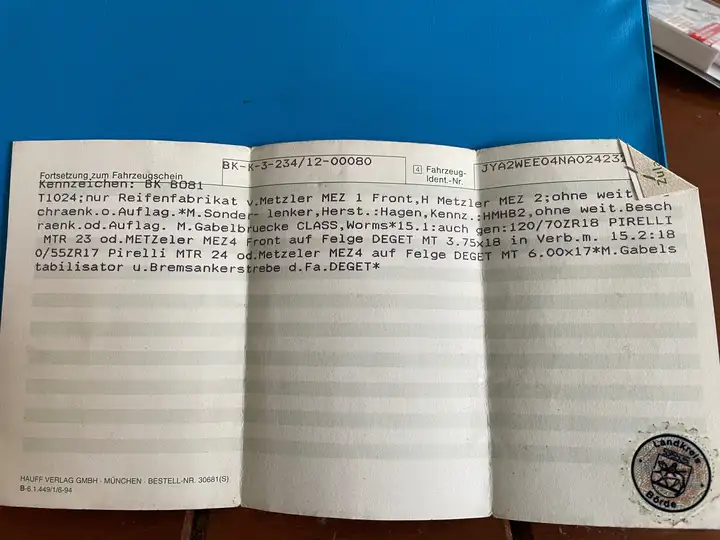 BK-K-3-234/12-00080
Fortsetzung zum Fahrzeugschein
4 Fahrzeug-Ident.-Nr.
JYA2WEE04NA02423
Kennzeichen: BK B081
T1024;nur Reifenfabrikat v.Metzler MEZ 1 Front,H Metzler MEZ 2;ohne weit
schraenk.o.Auflag.*M.Sonder- lenker,Herst.:Hagen,Kennz.:HMHB2,ohne weit.Besch
raenk.od.Auflag. M.Gabelbruecke CLASS,Worms*15.1:auch gen:120/70ZR18 PIRELLI
MTR 23 od.METZeler MEZ4 Front auf Felge DEGET MT 3.75x18 in Verb.m. 15.2:18
0/55ZR17 Pirelli MTR 24 od.Metzeler MEZ4 auf Felge DEGET MT 6.00x17*M.Gabels
tabilisator u.Bremsankerstrebe d.Fa.DEGET*
HAUFF VERLAG GMBH · MÜNCHEN · BESTELL-NR. 30681(S)
B-6.1.449/1/6-94
Landkreis
Börde